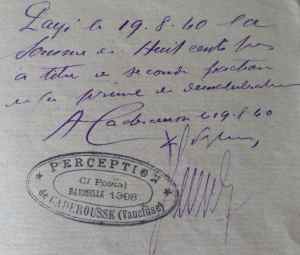 Payé le 19.8.40 la
somme de Huit cents frs
à titre de seconde fraction
de la prime de démobilisation
A Caderousse le 19.8.40
PERCEPTION
C/ Postal
MARSEILLE 1308
de CADEROUSSE (Vaucluse)